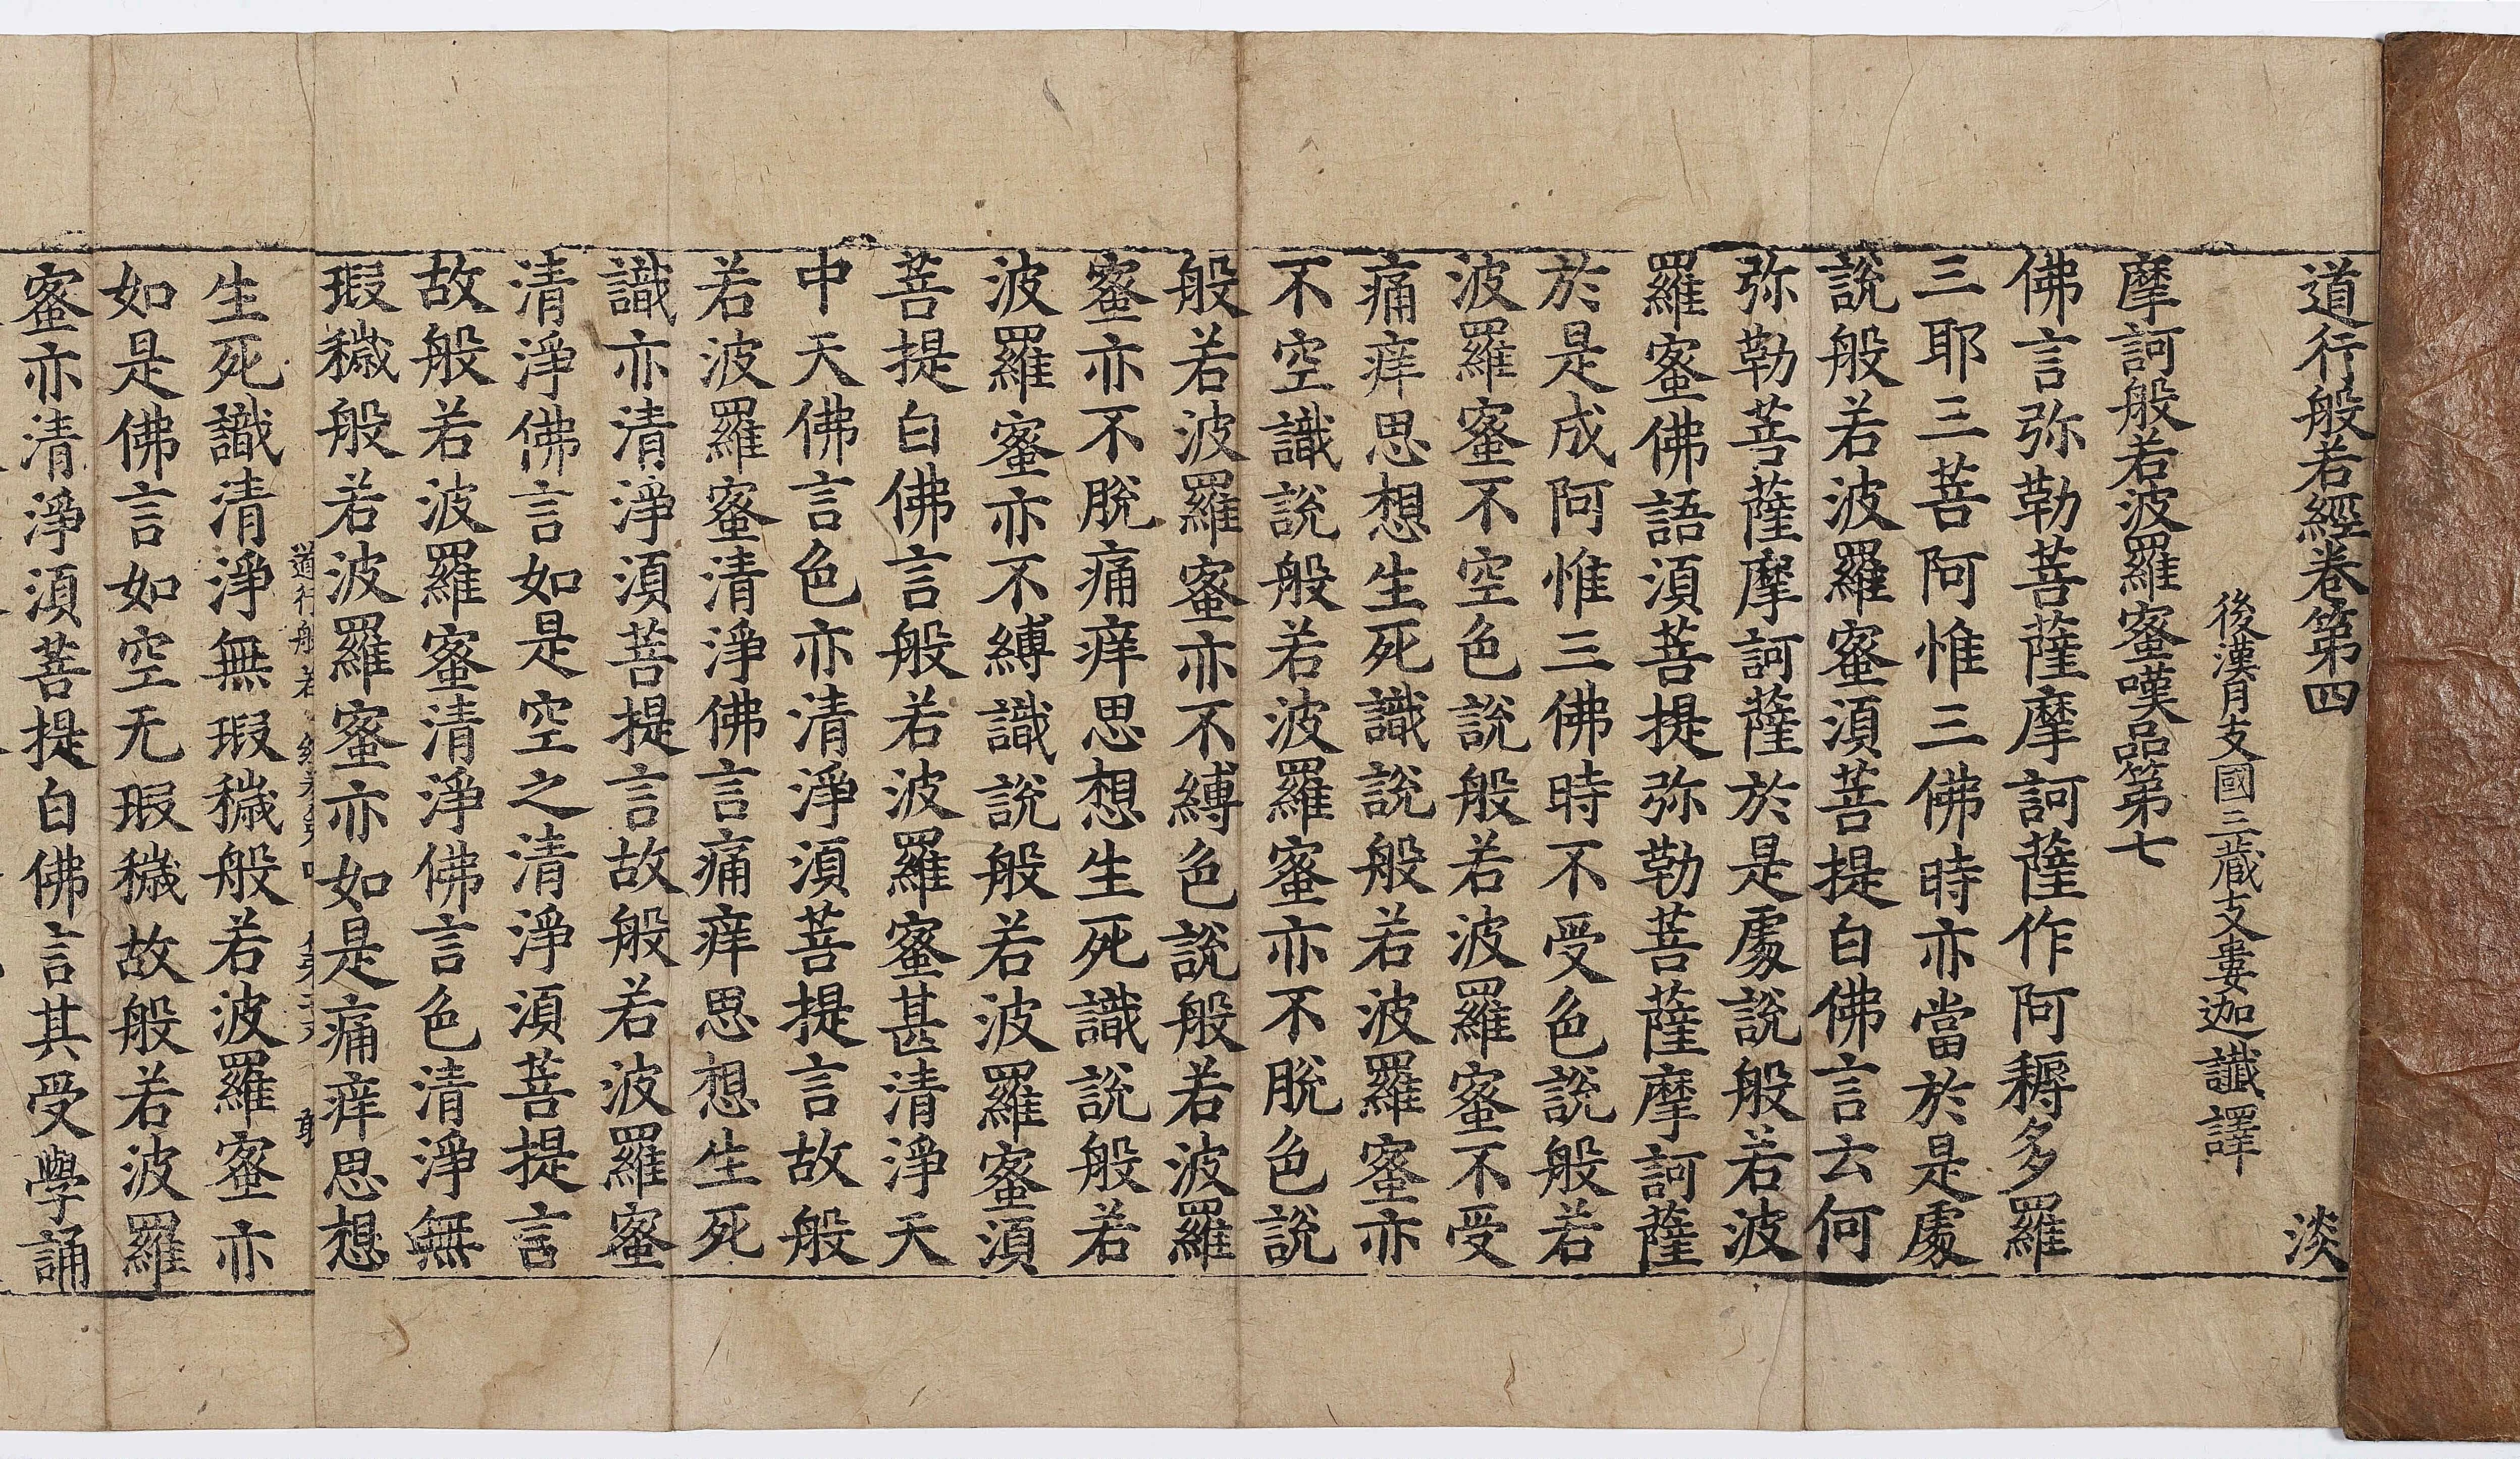 道行般若經卷第四 淡
後漢月支國三藏支婁迦讖譯
摩訶般若波羅蜜嘆品第七
佛言弥勒菩薩摩訶薩作阿耨多羅
三耶三菩阿惟三佛時亦當於是處
說般若波羅蜜須菩提白佛言云何
弥勒菩薩摩訶薩於是處說般若波
羅蜜佛語須菩提弥勒菩薩摩訶薩
於是成阿惟三佛時不受色說般若
波羅蜜不空色說般若波羅蜜不受
痛痒思想生死識說般若波羅蜜亦
不空識說般若波羅蜜亦不脫色說
般若波羅蜜亦不縛色說般若波羅
蜜亦不脫痛痒思想生死識說般若
波羅蜜亦不縛識說般若波羅蜜須
菩提白佛言般若波羅蜜甚清淨天
中天佛言色亦清淨須菩提言故般
若波羅蜜清淨佛言痛痒思想生死
識亦清淨須菩提言故般若波羅蜜
清淨佛言如是空之清淨須菩提言
故般若波羅蜜清淨佛言色清淨無
瑕穢般若波羅蜜亦如是痛痒思想
道行般若
生死識清淨無瑕穢般若波羅蜜亦
如是佛言如空无瑕穢故般若波羅
蜜亦清淨須菩提白佛言其受學誦